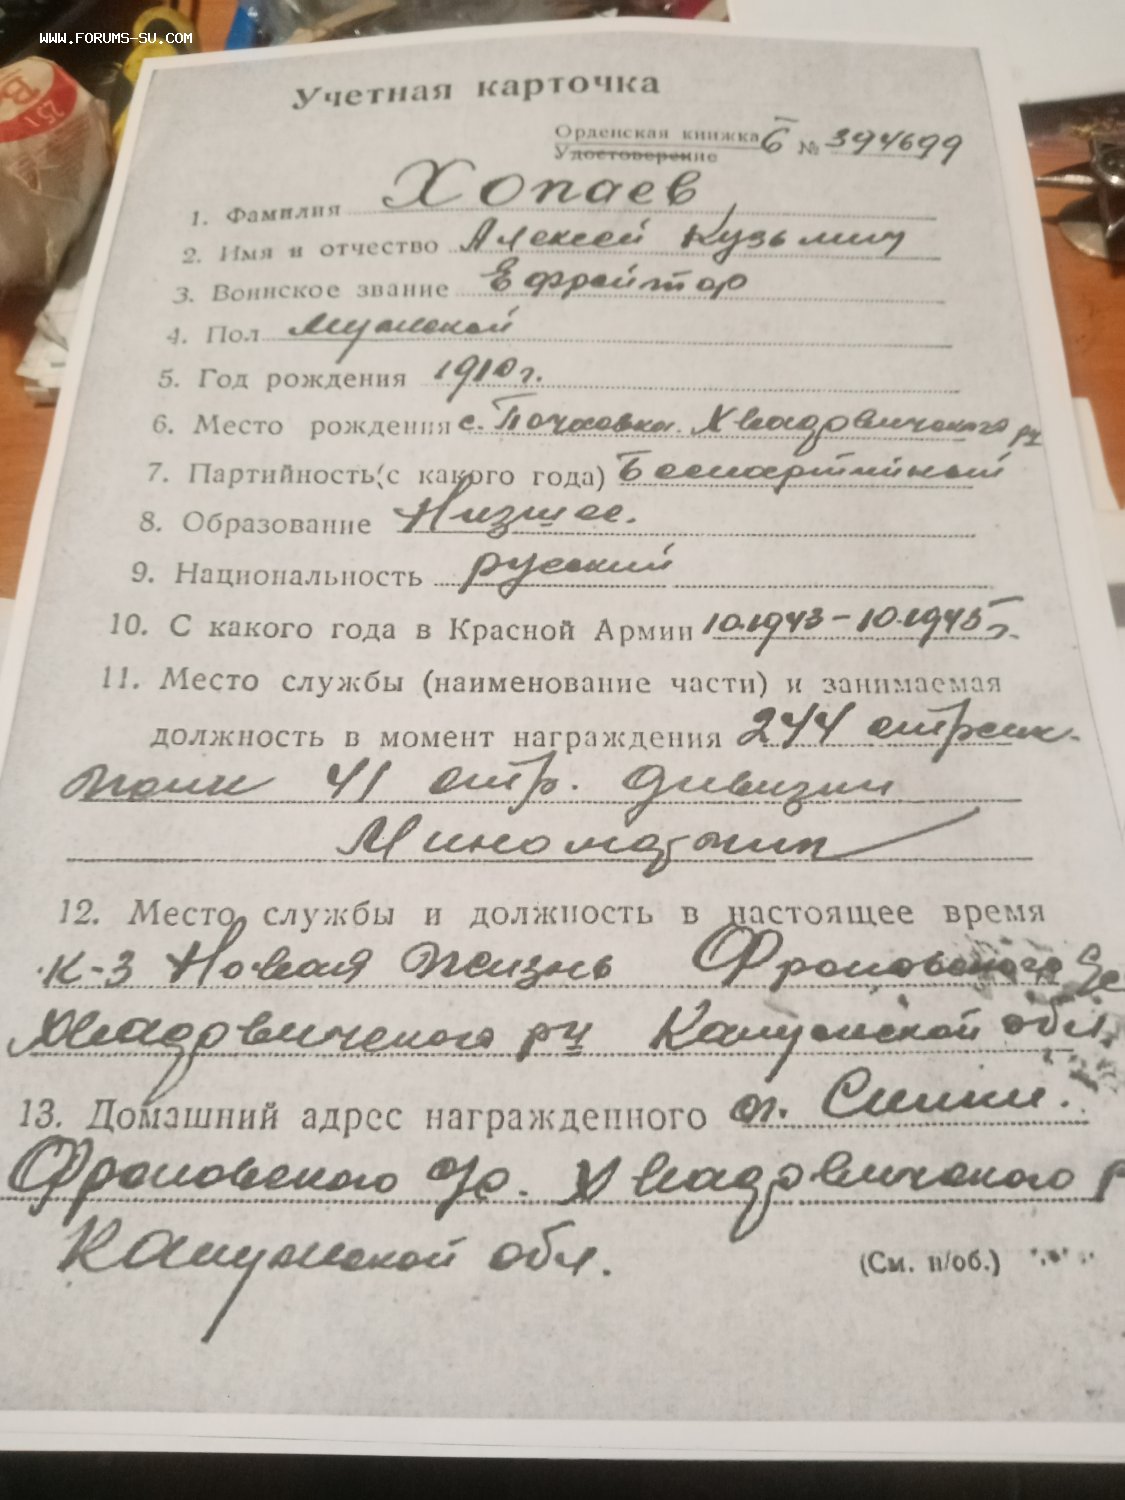 WWW.FORUMS-SU.COM
Учетная карточка
Орденская книжка Б № 394699
Удостоверение
1. Фамилия Хопаев
2. Имя и отчество Алексей Кузьмич
3. Воинское звание Ефрейтор
4. Пол мужской
5. Год рождения 1910 г.
6. Место рождения с. Хвастовического рн
7. Партийность (с какого года) Беспартийный
8. Образование Низшее.
9. Национальность русский
10. С какого года в Красной Армии 10.1943 - 10.1945 г.
11. Место службы (наименование части) и занимаемая
должность в момент награждения 244 стрелк.
полк 41 стр. дивизии
Минометчик
12. Место службы и должность в настоящее время
к-з Новая жизнь Фроловского
Хвастовического рн Калужской обл.
13. Домашний адрес награжденного
Фроловского Хвастовического р
Калужской обл.
(См. н/об.)